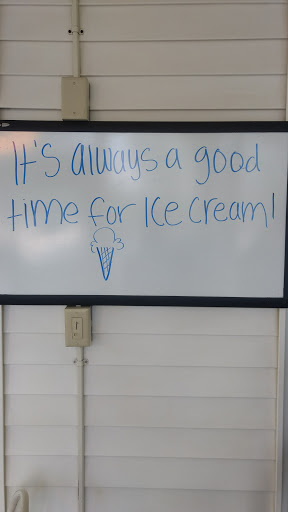 It's always a good
time for Ice cream!